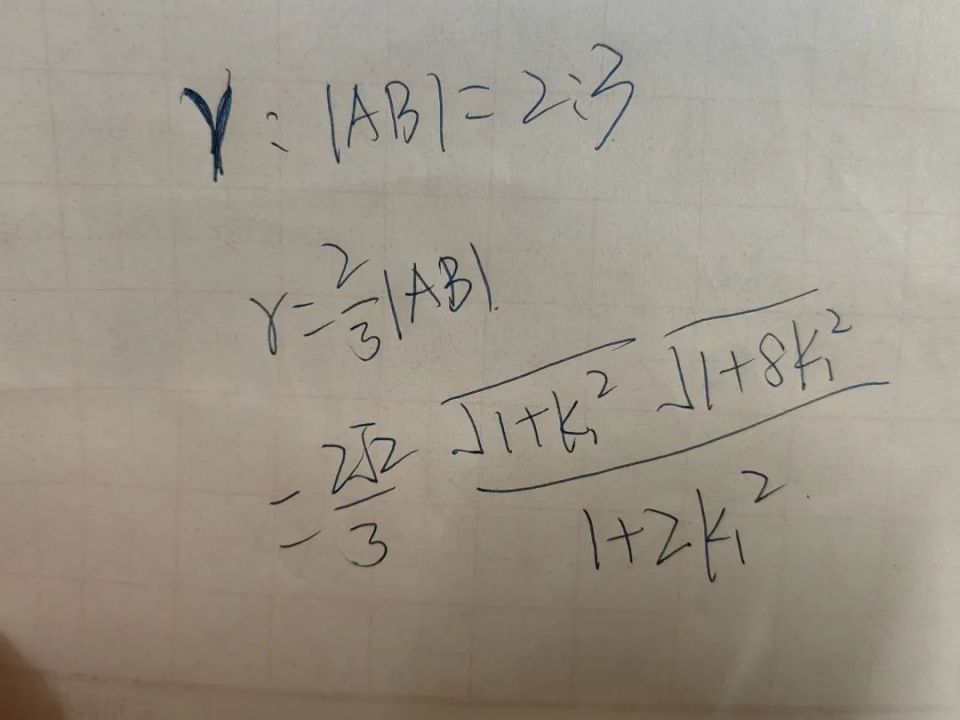 r : |AB| = 2:3
r = 2/3 |AB|.
= 2√2/3 √(1+k₁²) √(1+8k₁²) / (1+2k₁²).